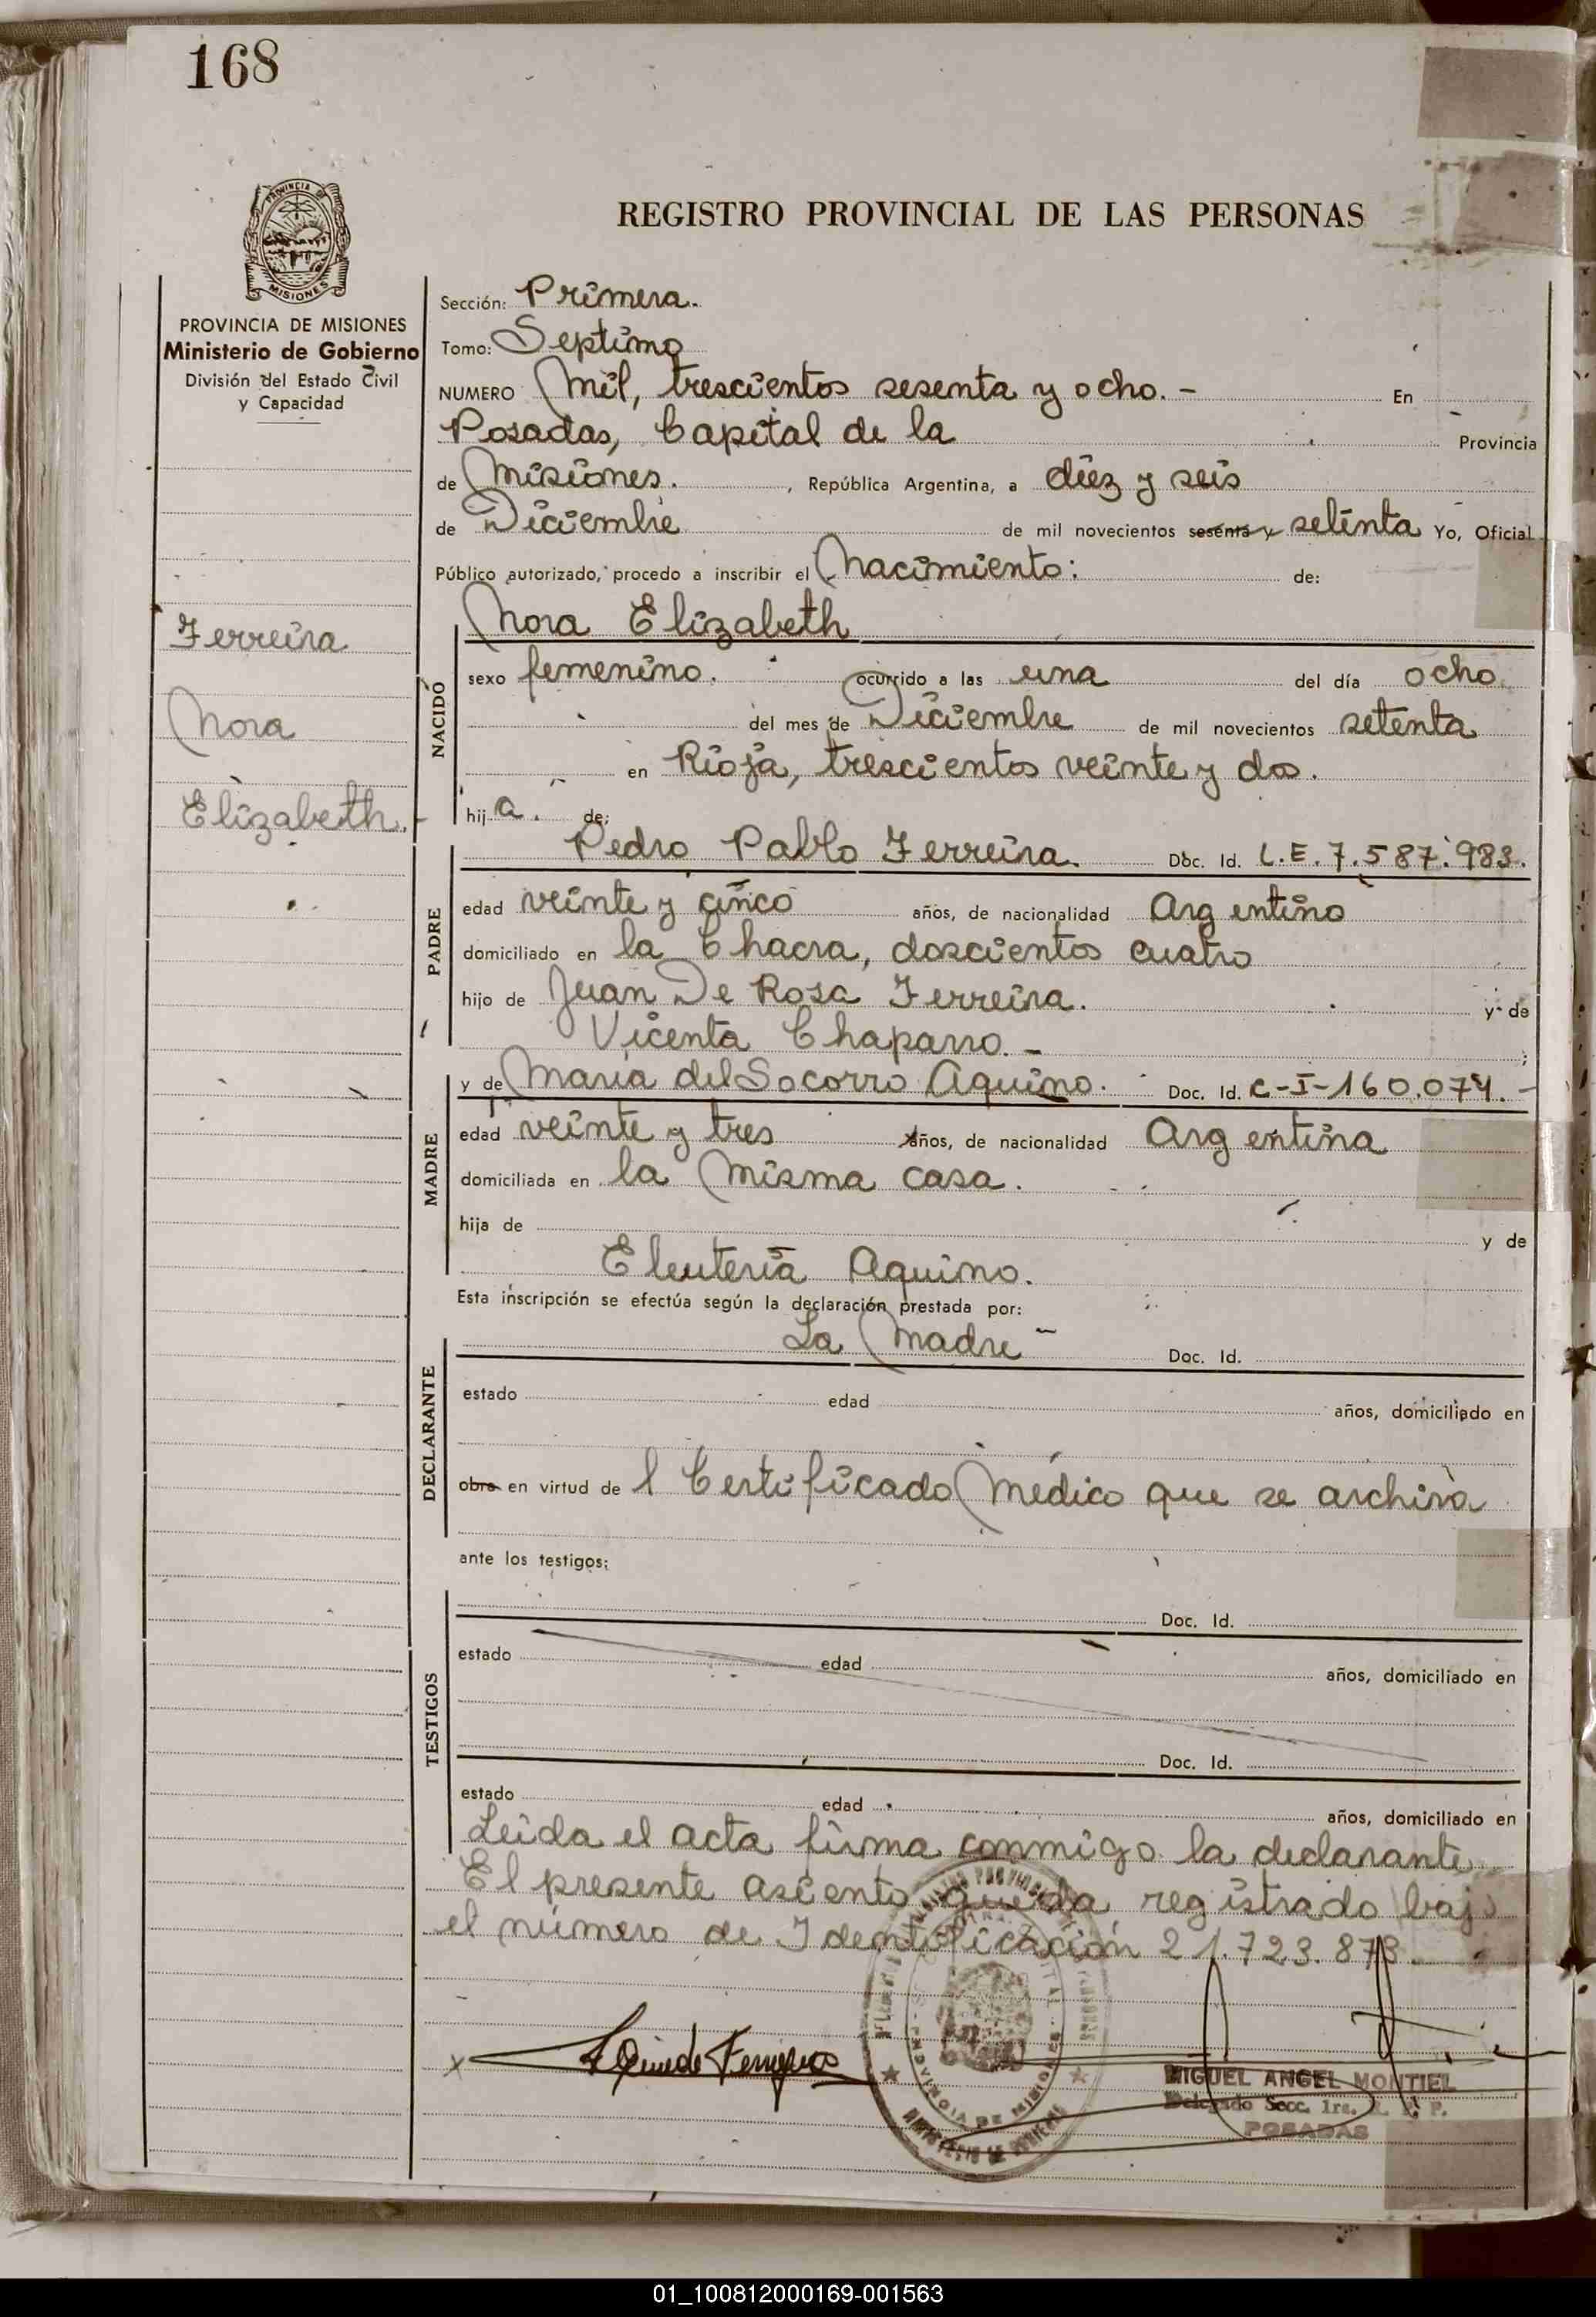 168
PROVINCIA DE
MISIONES
PROVINCIA DE MISIONES
Ministerio de Gobierno
División del Estado Civil
y Capacidad
Ferreira
Nora
Elizabeth.
REGISTRO PROVINCIAL DE LAS PERSONAS
Sección: Primera.
Tomo: Septimo
NUMERO Mil, trescientos sesenta y ocho. - En
Posadas, Capital de la Provincia
de Misiones. , República Argentina, a diez y seis
de Diciembre de mil novecientos sesenta y setenta Yo, Oficial
Público autorizado, procedo a inscribir el Nacimiento: de:
NACIDO
Nora Elizabeth
sexo femenino. ocurrido a las una del día ocho
del mes de Diciembre de mil novecientos setenta
en Rioja, trescientos veinte y dos.
hij a. de:
PADRE
Pedro Pablo Ferreira. Doc. Id. L.E. 7.587.983.
edad veinte y cinco años, de nacionalidad Argentino
domiciliado en la Chacra, doscientos cuatro
hijo de Juan De Rosa Ferreira. y de
Vicenta Chaparro. - ;
MADRE
y de Maria del Socorro Aquino. Doc. Id. C-I-160.074. -
edad veinte y tres años, de nacionalidad Argentina
domiciliada en la Misma casa.
hija de y de
Eleuteria Aquino.
Esta inscripción se efectúa según la declaración prestada por:
DECLARANTE
La Madre Doc. Id.
estado edad años, domiciliado en
obra en virtud de l Certificado Medico que se archiva
ante los testigos:
TESTIGOS
Doc. Id.
estado edad años, domiciliado en
Doc. Id.
estado edad años, domiciliado en
Leida el acta firma conmigo la declarante
El presente asiento queda registrado bajo
el número de Identificación 21.723.873.
x
PROVINCIA DE MISIONES
MIGUEL ANGEL MONTIEL
Delegado Secc. 1ra. R. P. P.
POSADAS
01_100812000169-001563